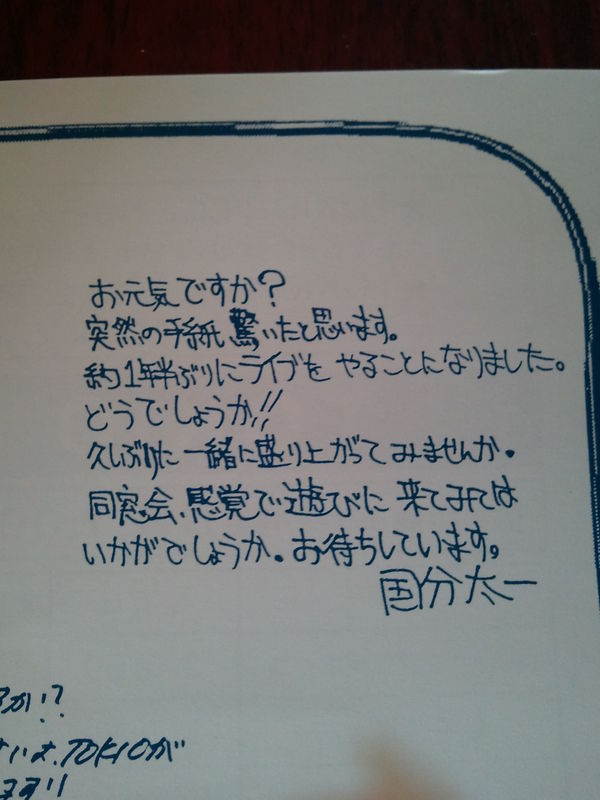 お元気ですか?
突然の手紙驚いたと思います。
約1年半ぶりにライブを やることになりました。
どうでしょうか!!
久しぶりに 一緒に盛り上がってみませんか。
同窓会感覚で遊びに 来てみては
いかがでしょうか。お待ちしています。
国分太一
か!?
TOKIOが
ます!!